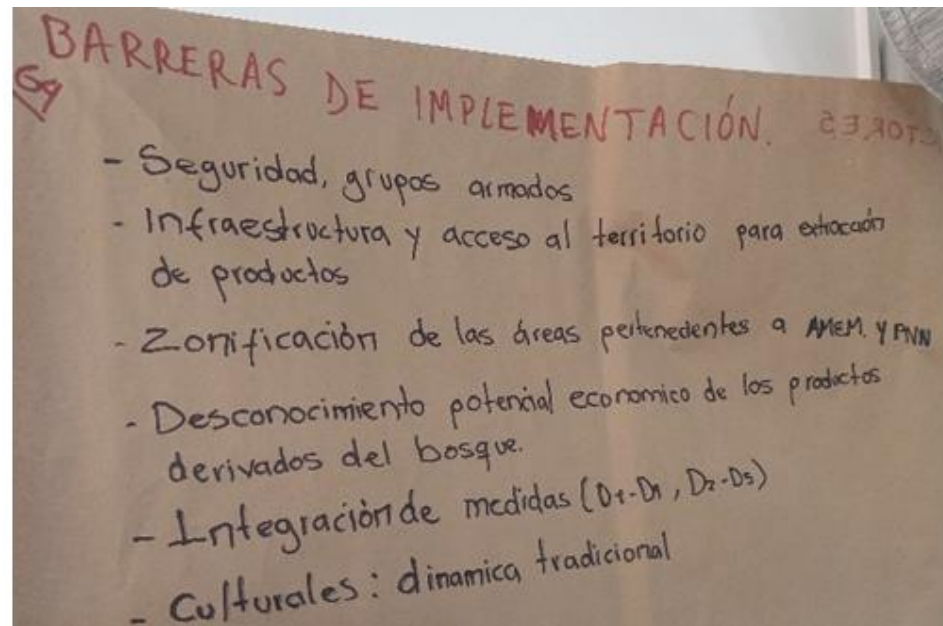 BARRERAS DE IMPLEMENTACIÓN.
- Seguridad, grupos armados
- Infraestructura y acceso al territorio para extracción
de productos
- Zonificación de las áreas pertenecientes a AMEM. Y PNN
- Desconocimiento potencial economico de los productos
derivados del bosque.
- Integración de medidas (D1-D1, D2-D5)
- Culturales: dinamica tradicional